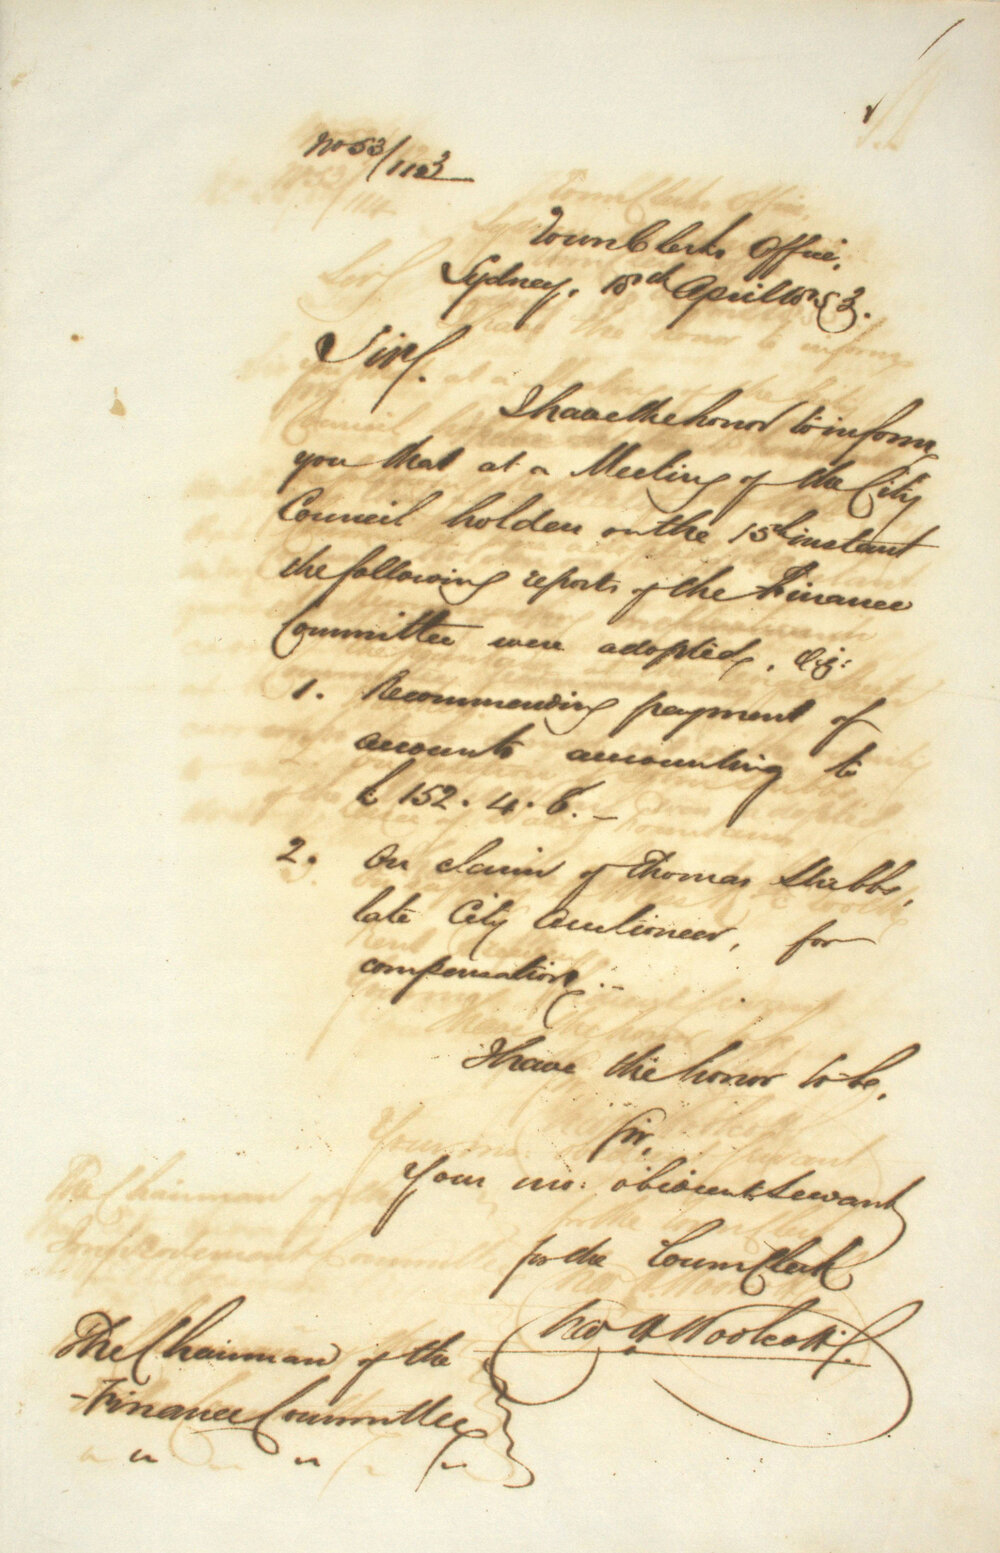 No 53/1123
Town Clerks Office,
Sydney, April 1853.
Sir,
I have the honor to inform
you that at a Meeting of the City
Council holden on the 15th instant
the following reports of the Finance
Committee were adopted, viz:
1. Recommending payment of
accounts amounting to
£152.4.8. _
2. On claim of Thomas Stubbs,
late City Auctioneer, for
compensation. _
I have the honor to be,
Sir,
Your mo: obedient Servant
for the Town Clerk
Woolcott
The Chairman of the
Finance Committee